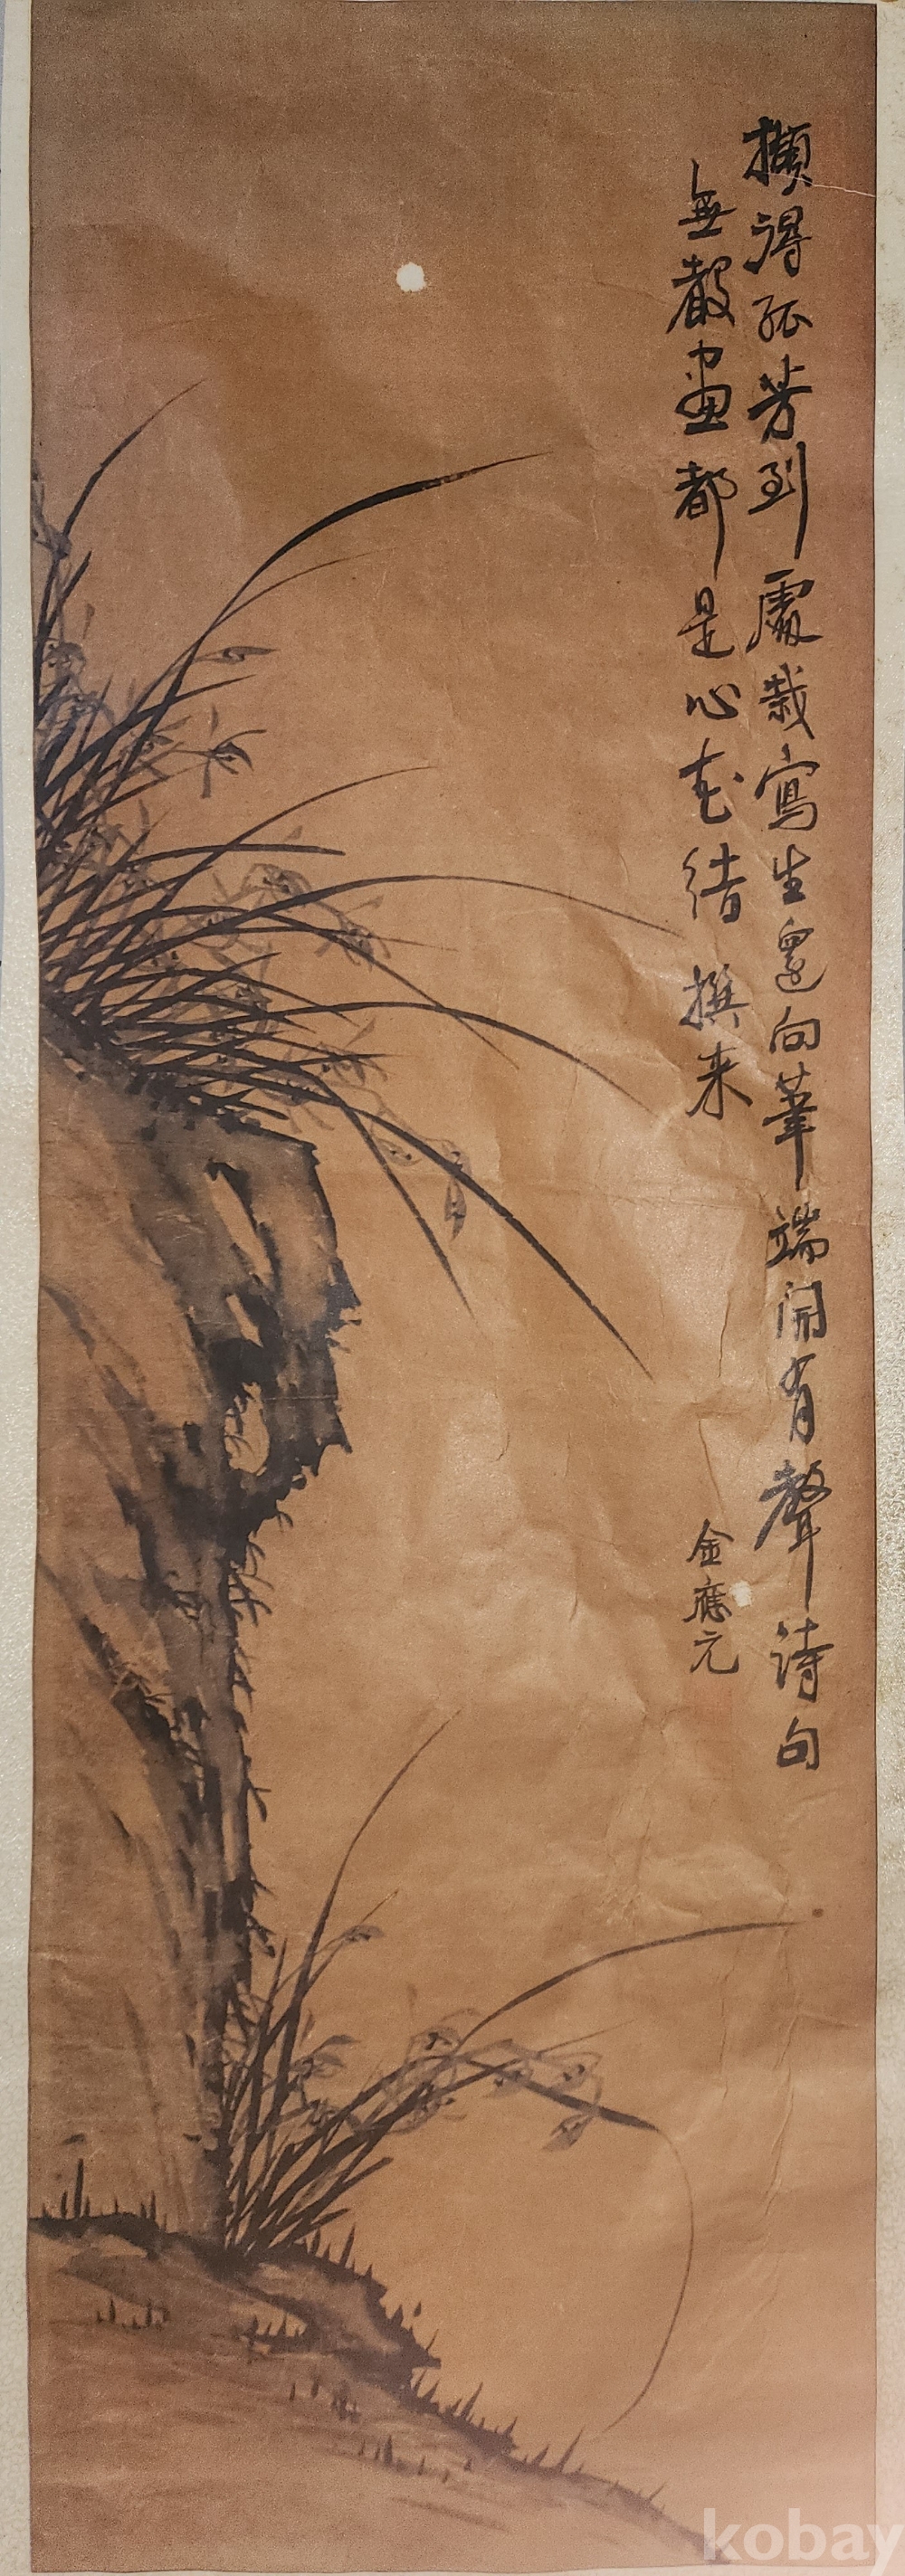 擷得孤芳到處栽寫生還向葦端開有聲詩句
無聲畵都是心花結撰来
金應元
kobay